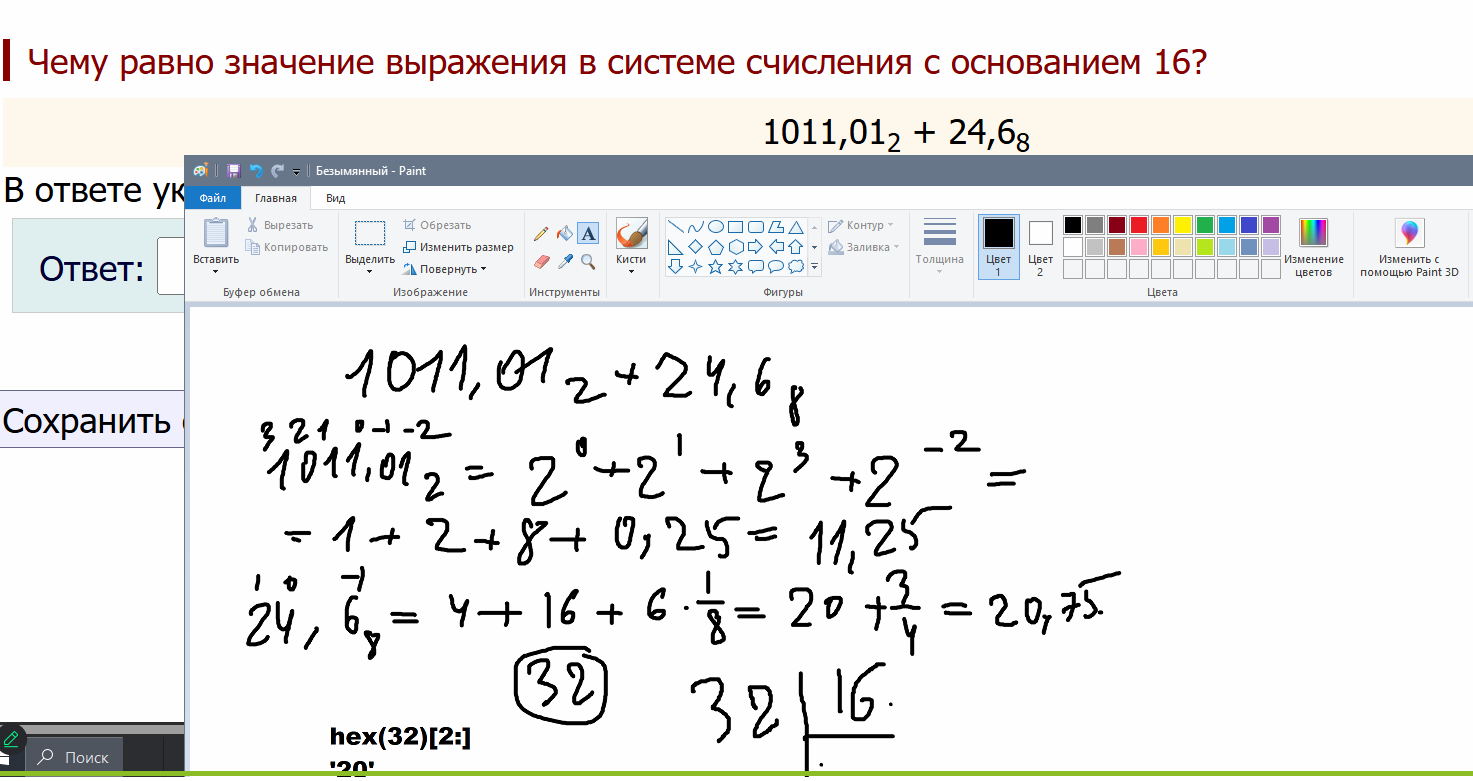 Чему равно значение выражения в системе счисления с основанием 16?
1011,01₂ + 24,6₈
В ответе ук
Ответ:
Сохранить
Безымянный - Paint
Файл Главная Вид
Вставить
Вырезать
Копировать
Буфер обмена
Выделить
Обрезать
Изменить размер
Повернуть
Изображение
A
Инструменты
Кисти
Контур
Заливка
Фигуры
Толщина
Цвет 1
Цвет 2
Изменение цветов
Цвета
Изменить с помощью Paint 3D
1011,01₂ + 24,6₈
3 2 1 0 -1 -2
1011,01₂ = 2⁰ + 2¹ + 2³ + 2⁻² =
= 1 + 2 + 8 + 0,25 = 11,25
1 0 -1
24,6₈ = 4 + 16 + 6 · 1/8 = 20 + 3/4 = 20,75.
32
32 | 16.
hex(32)[2:]
'20'
Поиск